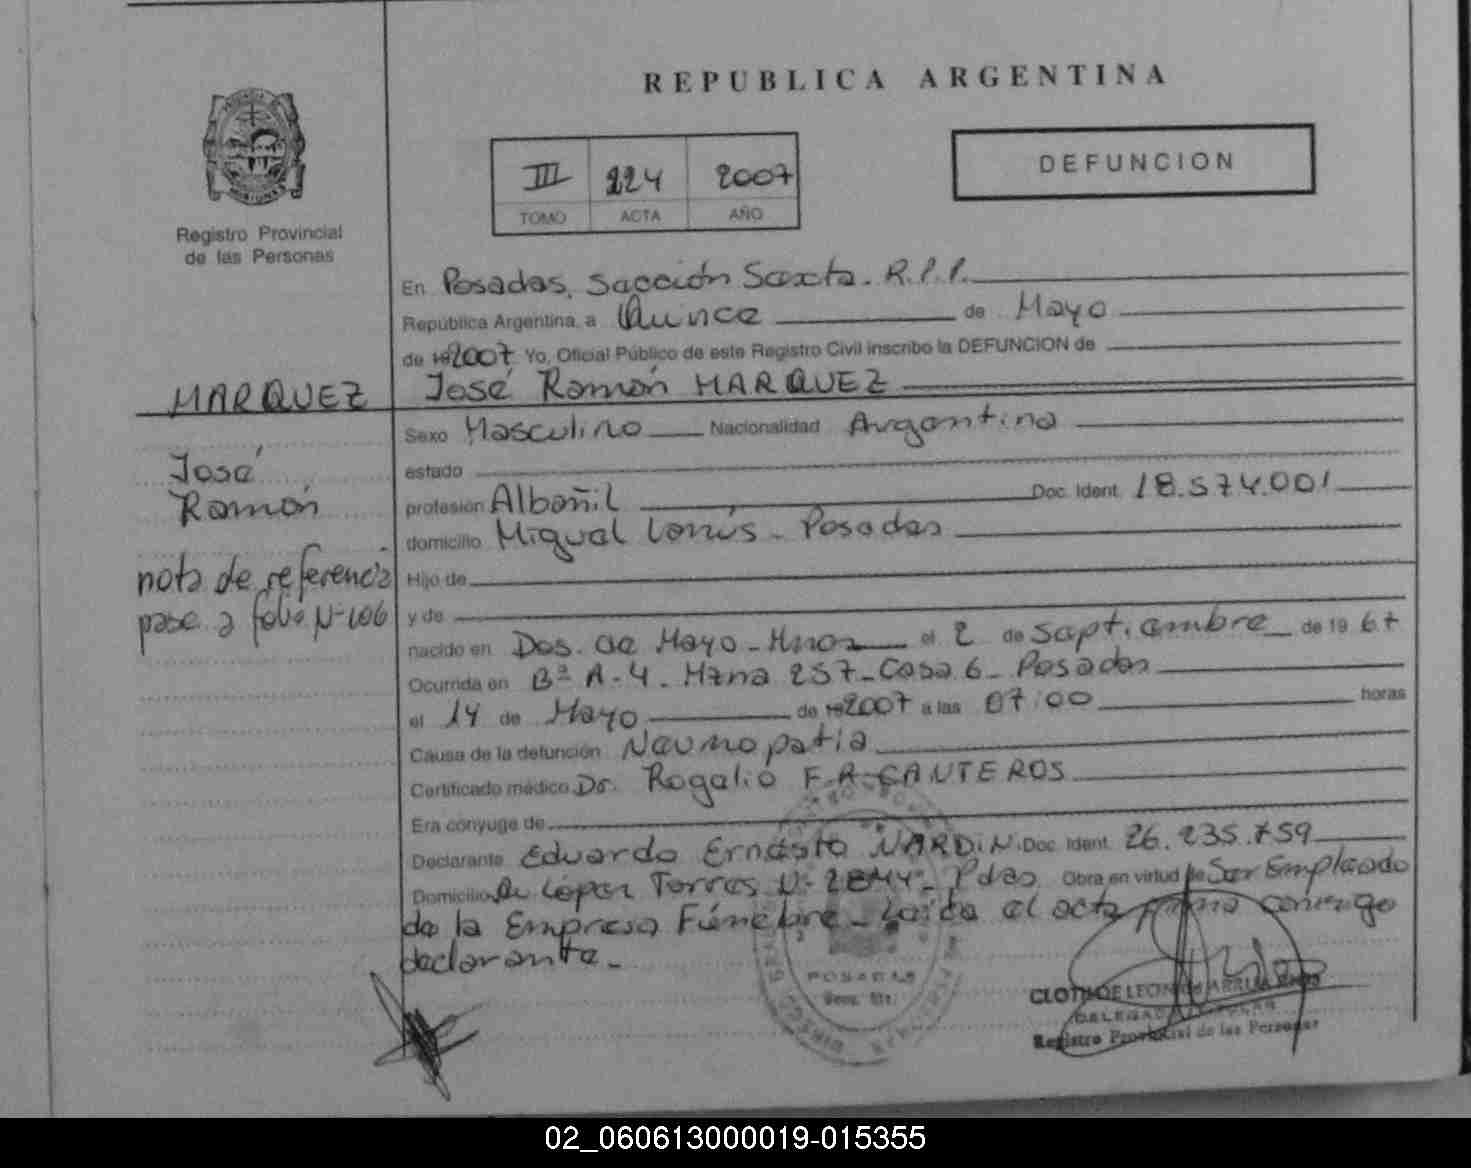 REPUBLICA ARGENTINA
III 224 2007
TOMO ACTA AÑO
DEFUNCION
Registro Provincial
de las Personas
En Posadas, Sección Sexta. R.P.P.
República Argentina, a Quince de Mayo
de 19 2007 Yo, Oficial Público de este Registro Civil inscribo la DEFUNCION de
José Ramón MARQUEZ
MARQUEZ
José
Ramón
nota de referencia
pase a folio Nº 106
Sexo Masculino Nacionalidad Argentina
estado
profesión Albañil Doc. Ident. 18.574.001
domicilio Miguel Lanús - Posadas
Hijo de
y de
nacido en Dos de Mayo - Mnes el 2 de Septiembre de 19 67
Ocurrida en Bº A-4 - Mzna 257 - Casa 6 - Posadas
el 14 de Mayo de 19 2007 a las 07:00 horas
Causa de la defunción Neumopatia
Certificado médico Dr. Rogelio F. A. CANTEROS
Era cónyuge de
Declarante Eduardo Ernesto NARDIN Doc. Ident. 26.235.759
Domicilio Av López Torres Nº 2844 - Pdas Obra en virtud de Ser Empleado
de la Empresa Fúnebre - Leída el acta firma conmigo
declarante.
POSADAS
Registro Provincial de las Personas
02_060613000019-015355